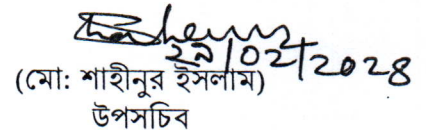 ২৯/০২/২০২৪
(মো: শাহীনুর ইসলাম)
উপসচিব